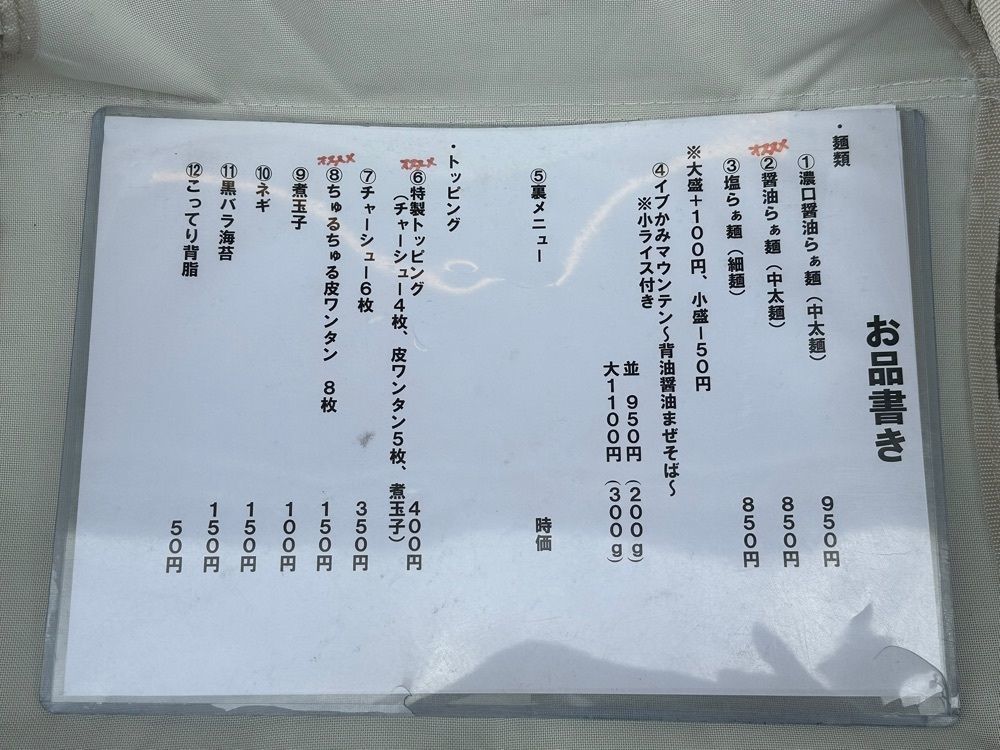 お品書き
・麺類
①濃口醤油らぁ麺（中太麺） 950円
オススメ
②醤油らぁ麺（中太麺） 850円
③塩らぁ麺（細麺） 850円
※大盛＋100円、小盛－50円
④イブかみマウンテン～背油醤油まぜそば～
※小ライス付き
並 950円（200g）
大1100円（300g）
⑤裏メニュー 時価
・トッピング
オススメ
⑥特製トッピング 400円
（チャーシュー4枚、皮ワンタン5枚、煮玉子）
⑦チャーシュー6枚 350円
オススメ
⑧ちゅるちゅる皮ワンタン 8枚 150円
⑨煮玉子 100円
⑩ネギ 150円
⑪黒バラ海苔 150円
⑫こってり背脂 50円